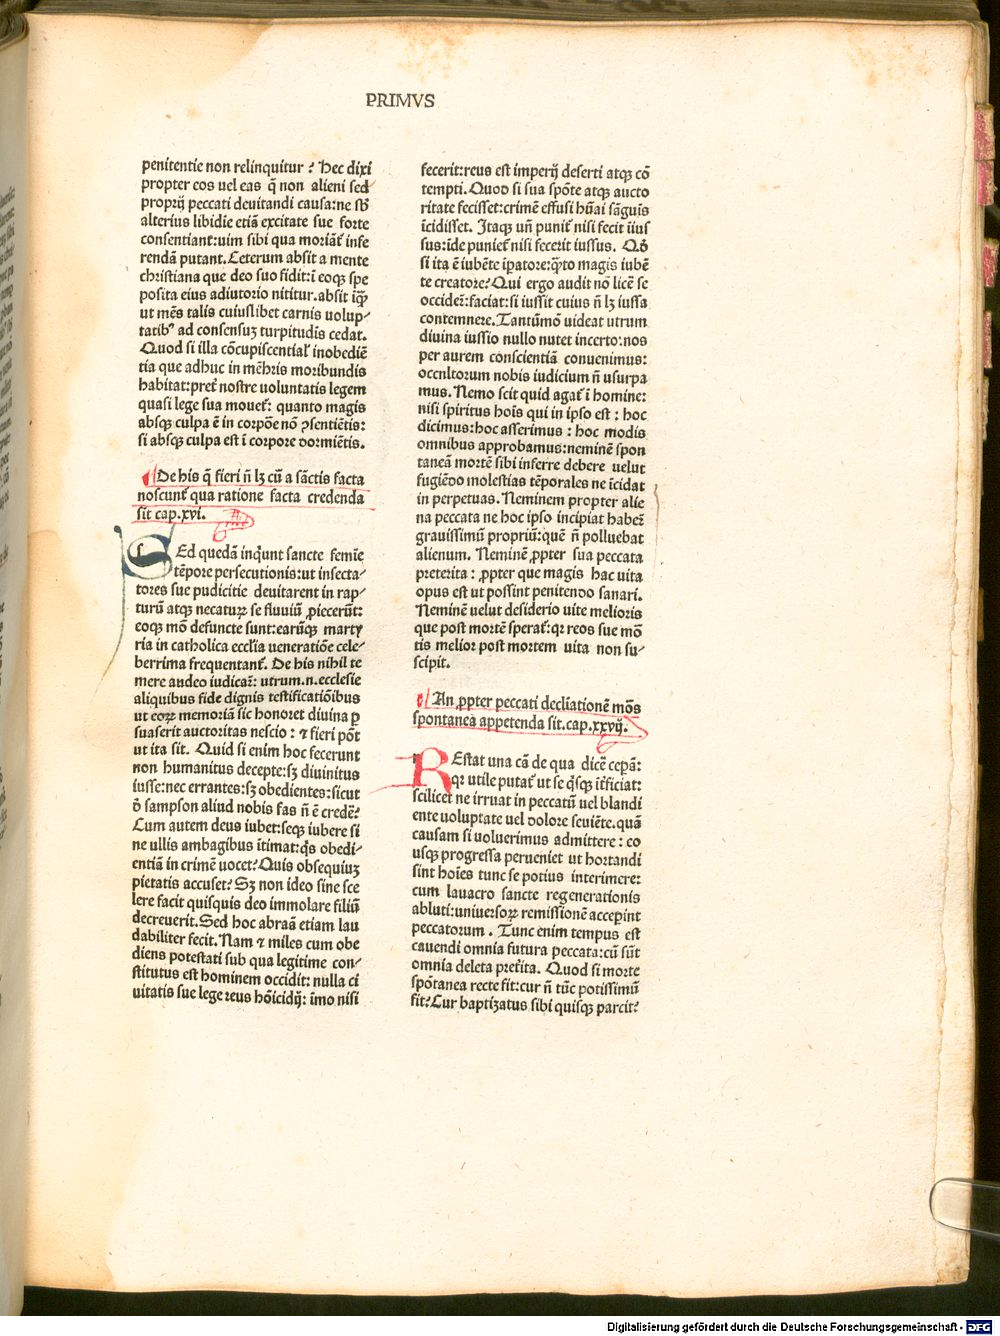 PRIMVS
penitentie non relinquitur ? Hec dixi
propter eos uel eas q̃ non alieni sed
proprij peccati deuitandi causa:ne sƀ
alterius libidĩe etiã excitate sue forte
consentiant:uim sibi qua moriãt̃ infe
rendã putant. Ceterum absit a mente
christiana que deo suo fidit:ĩ eoqꝫ spe
posita eius adiutorio nititur.absit iq̃ꝫ
ut mẽs talis cuiuslibet carnis uolup⸗
tatibꝰ ad consensuꝫ turpitudĩs cedat.
Quod si illa cõcupiscential̃ inobediẽ
tia que adhuc in mẽbris moribundis
habitat:pret̃ nostre uoluntatis legem
quasi lege sua mouet̃: quanto magis
absqꝫ culpa ẽ in corpõe nõ ꝯsentiẽtis:
si absqꝫ culpa est ĩ corpore dormiẽtis.
De his q̃ fieri ñ lꝫ cũ a sãctis facta
noscunt̃ qua ratione facta credenda
sit cap.xvi.
SEd quedã inqũnt sancte femĩe
tẽpore persecutionis:ut insecta⸗
tores sue pudicitie deuitarent in rap⸗
turũ atqꝫ necaturꝝ se fluuiũ ꝓiecerũt:
eoqꝫ mõ defuncte sunt:earũqꝫ marty
ria in catholica eccl̃ia ueneratiõe cele⸗
berrima frequentant̃. De his nihil te
mere audeo iudicar̃: utrum.n.ecclesie
aliquibus fide dignis testificatiõibus
ut eoꝝ memoriã sic honoret diuina ꝑ
suaserit auctoritas nescio : ⁊ fieri põt
ut ita sit. Quid si enim hoc fecerunt
non humanitus decepte:sꝫ diuinitus
iusse:nec errantes:sꝫ obedientes:sicut
đ sampson aliud nobis fas ñ ẽ credẽ?
Cum autem deus iubet:seqꝫ iubere si
ne ullis ambagibus ĩtimat:q̃s obedi⸗
entiã in crimẽ uocet?Quis obsequiuꝫ
pietatis accuset? Sꝫ non ideo sine sce
lere facit quisquis deo immolare filiũ
decreuerit.Sed hoc abraã etiam lau
dabiliter fecit. Nam ⁊ miles cum obe
diens potestati sub qua legitime con⸗
stitutus est hominem occidit: nulla ci
uitatis sue lege reus hõicidij: ĩmo nisi
fecerit:reus est imperij deserti atqꝫ cõ
tempti. Quod si sua spõte atqꝫ aucto
ritate fecisset:crimẽ effusi hũai sãguĩs
ĩcidisset. Itaqꝫ uñ punit̃ nisi fecit ĩius
sus:ĩde puniet̃ nisi fecerit iussus. Qđ
si ita ẽ iubẽte ĩpatore:q̃to magis iubẽ
te creatore?Qui ergo audit nõ licẽ se
occideñ:faciat:si iussit cuius ñ lꝫ iussa
contemnere.Tantũmõ uideat utrum
diuina iussio nullo nutet incerto:nos
per aurem conscientiã conuenimus:
occultorum nobis iudicium ñ usurpa
mus. Nemo scit quid agat̃ ĩ homine:
nisi spiritus hoĩs qui in ipso est : hoc
dicimus:hoc asserimus : hoc modis
omnibus approbamus:neminẽ spon
taneã mortẽ sibi inferre debere uelut
fugiẽdo molestias tẽporales ne ĩcidat
in perpetuas. Neminem propter alie
na peccata ne hoc ipso incipiat haberꝫ
grauissimũ propriũ:quẽ ñ polluebat
alienum. Neminẽ ꝓpter sua peccata
preterita : ꝓpter que magis hac uita
opus est ut possint penitendo sanari.
Neminẽ uelut desiderio uite melioris
que post mortẽ sperat̃:qꝛ reos sue mõ
tis melior post mortem uita non su⸗
scipit.
An ꝓpter peccati declĩationẽ mõs
spontanea appetenda sit.cap.xxvij.
REstat una cã de qua dicẽ cep̃ã:
qꝛ utile putat̃ ut se q̃sqꝫ ĩt̃ficiat:
scilicet ne irruat in peccatũ uel blandi
ente uoluptate uel dolore seuiẽte.quã
causam si uoluerimus admittere : eo
usqꝫ progressa perueniet ut hortandi
sint hoĩes tunc se potius interimere:
cum lauacro sancte regenerationis
abluti:uniuersoꝝ remissionẽ accep̃int
peccatorum . Tunc enim tempus est
cauendi omnia futura peccata:cũ sũt
omnia deleta pret̃ita. Quod si morte
spõtanea recte fit:cur ñ tũc potissimũ
fit?Cur baptiꝫatus sibi quisqꝫ parcit?
Digitalisierung gefördert durch die Deutsche Forschungsgemeinschaft - DFG